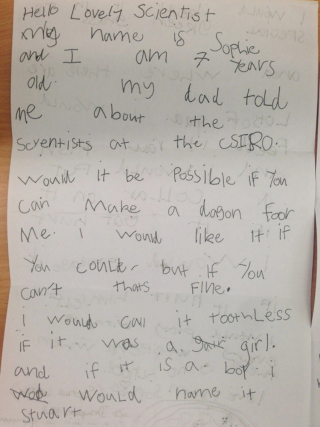 Hello Lovely Scientist
my name is Sophie
and I am 7 years
old. my dad told
me about the
Scientists at the CSIRO.
would it be Possible if You
can Make a dagon foor
Me. i would like it if
You could, but if You
can't thats Fine.
i would call it toothless
if it was a girl.
and if it is a boy i
would name it
Stuart